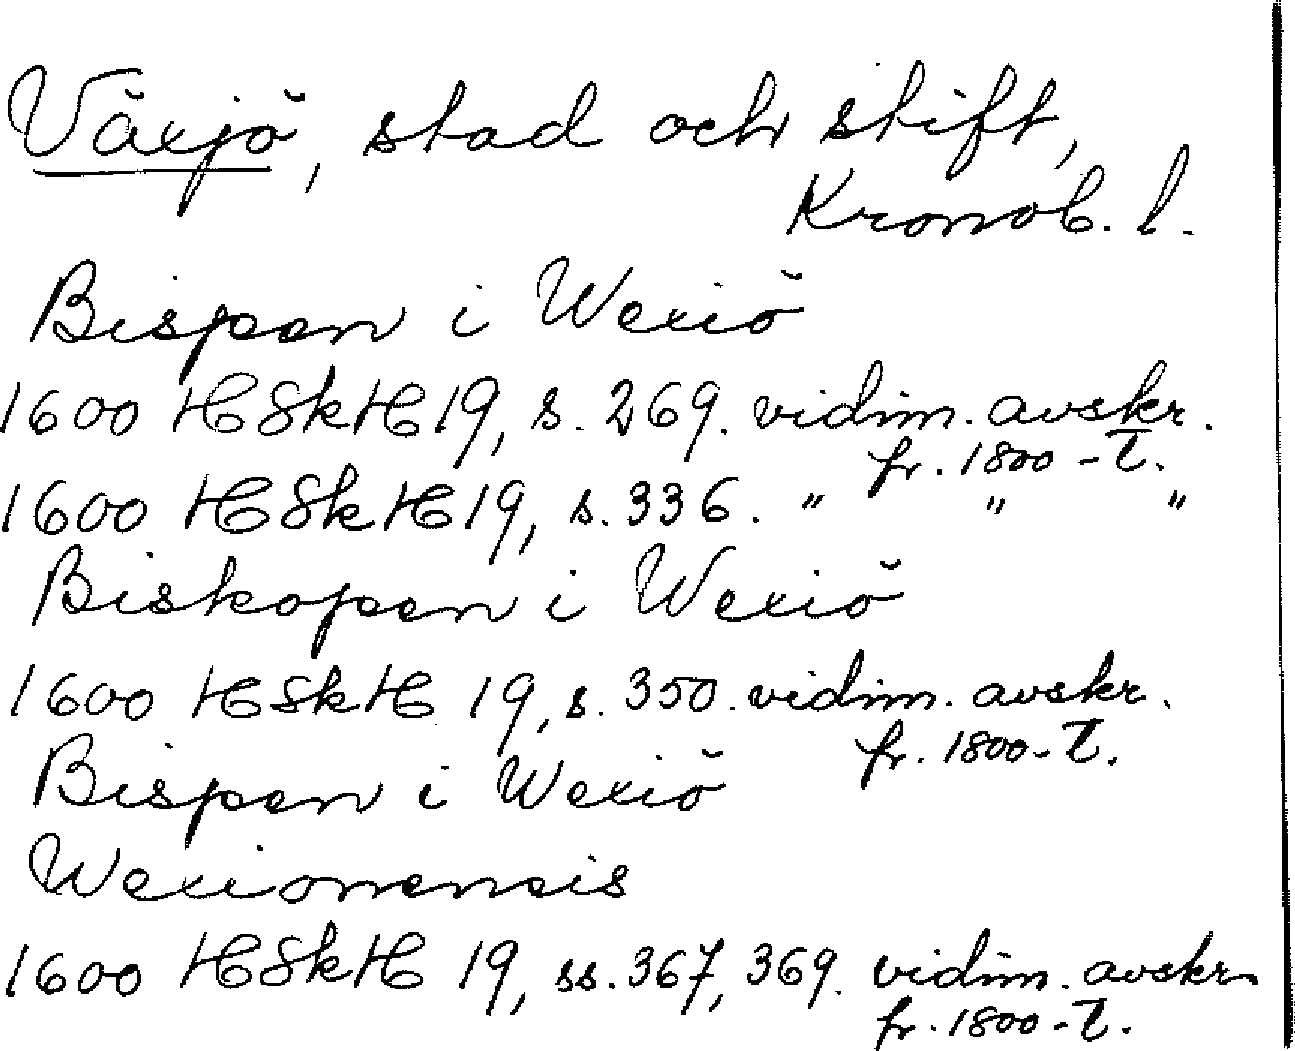 Växjö, stad och stift,
Kronob. l.
Bispen i Wexiö
1600 HSkH 19, s. 269. vidim. avskr.
fr. 1800-t.
1600 HSkH 19, s. 336. " " "
Biskopen i Wexiö
1600 HSkH 19, s. 350. vidim. avskr.
fr. 1800-t.
Bispen i Wexiö
Wexionensis
1600 HSkH 19, ss. 367, 369. vidim. avskr.
fr. 1800-t.